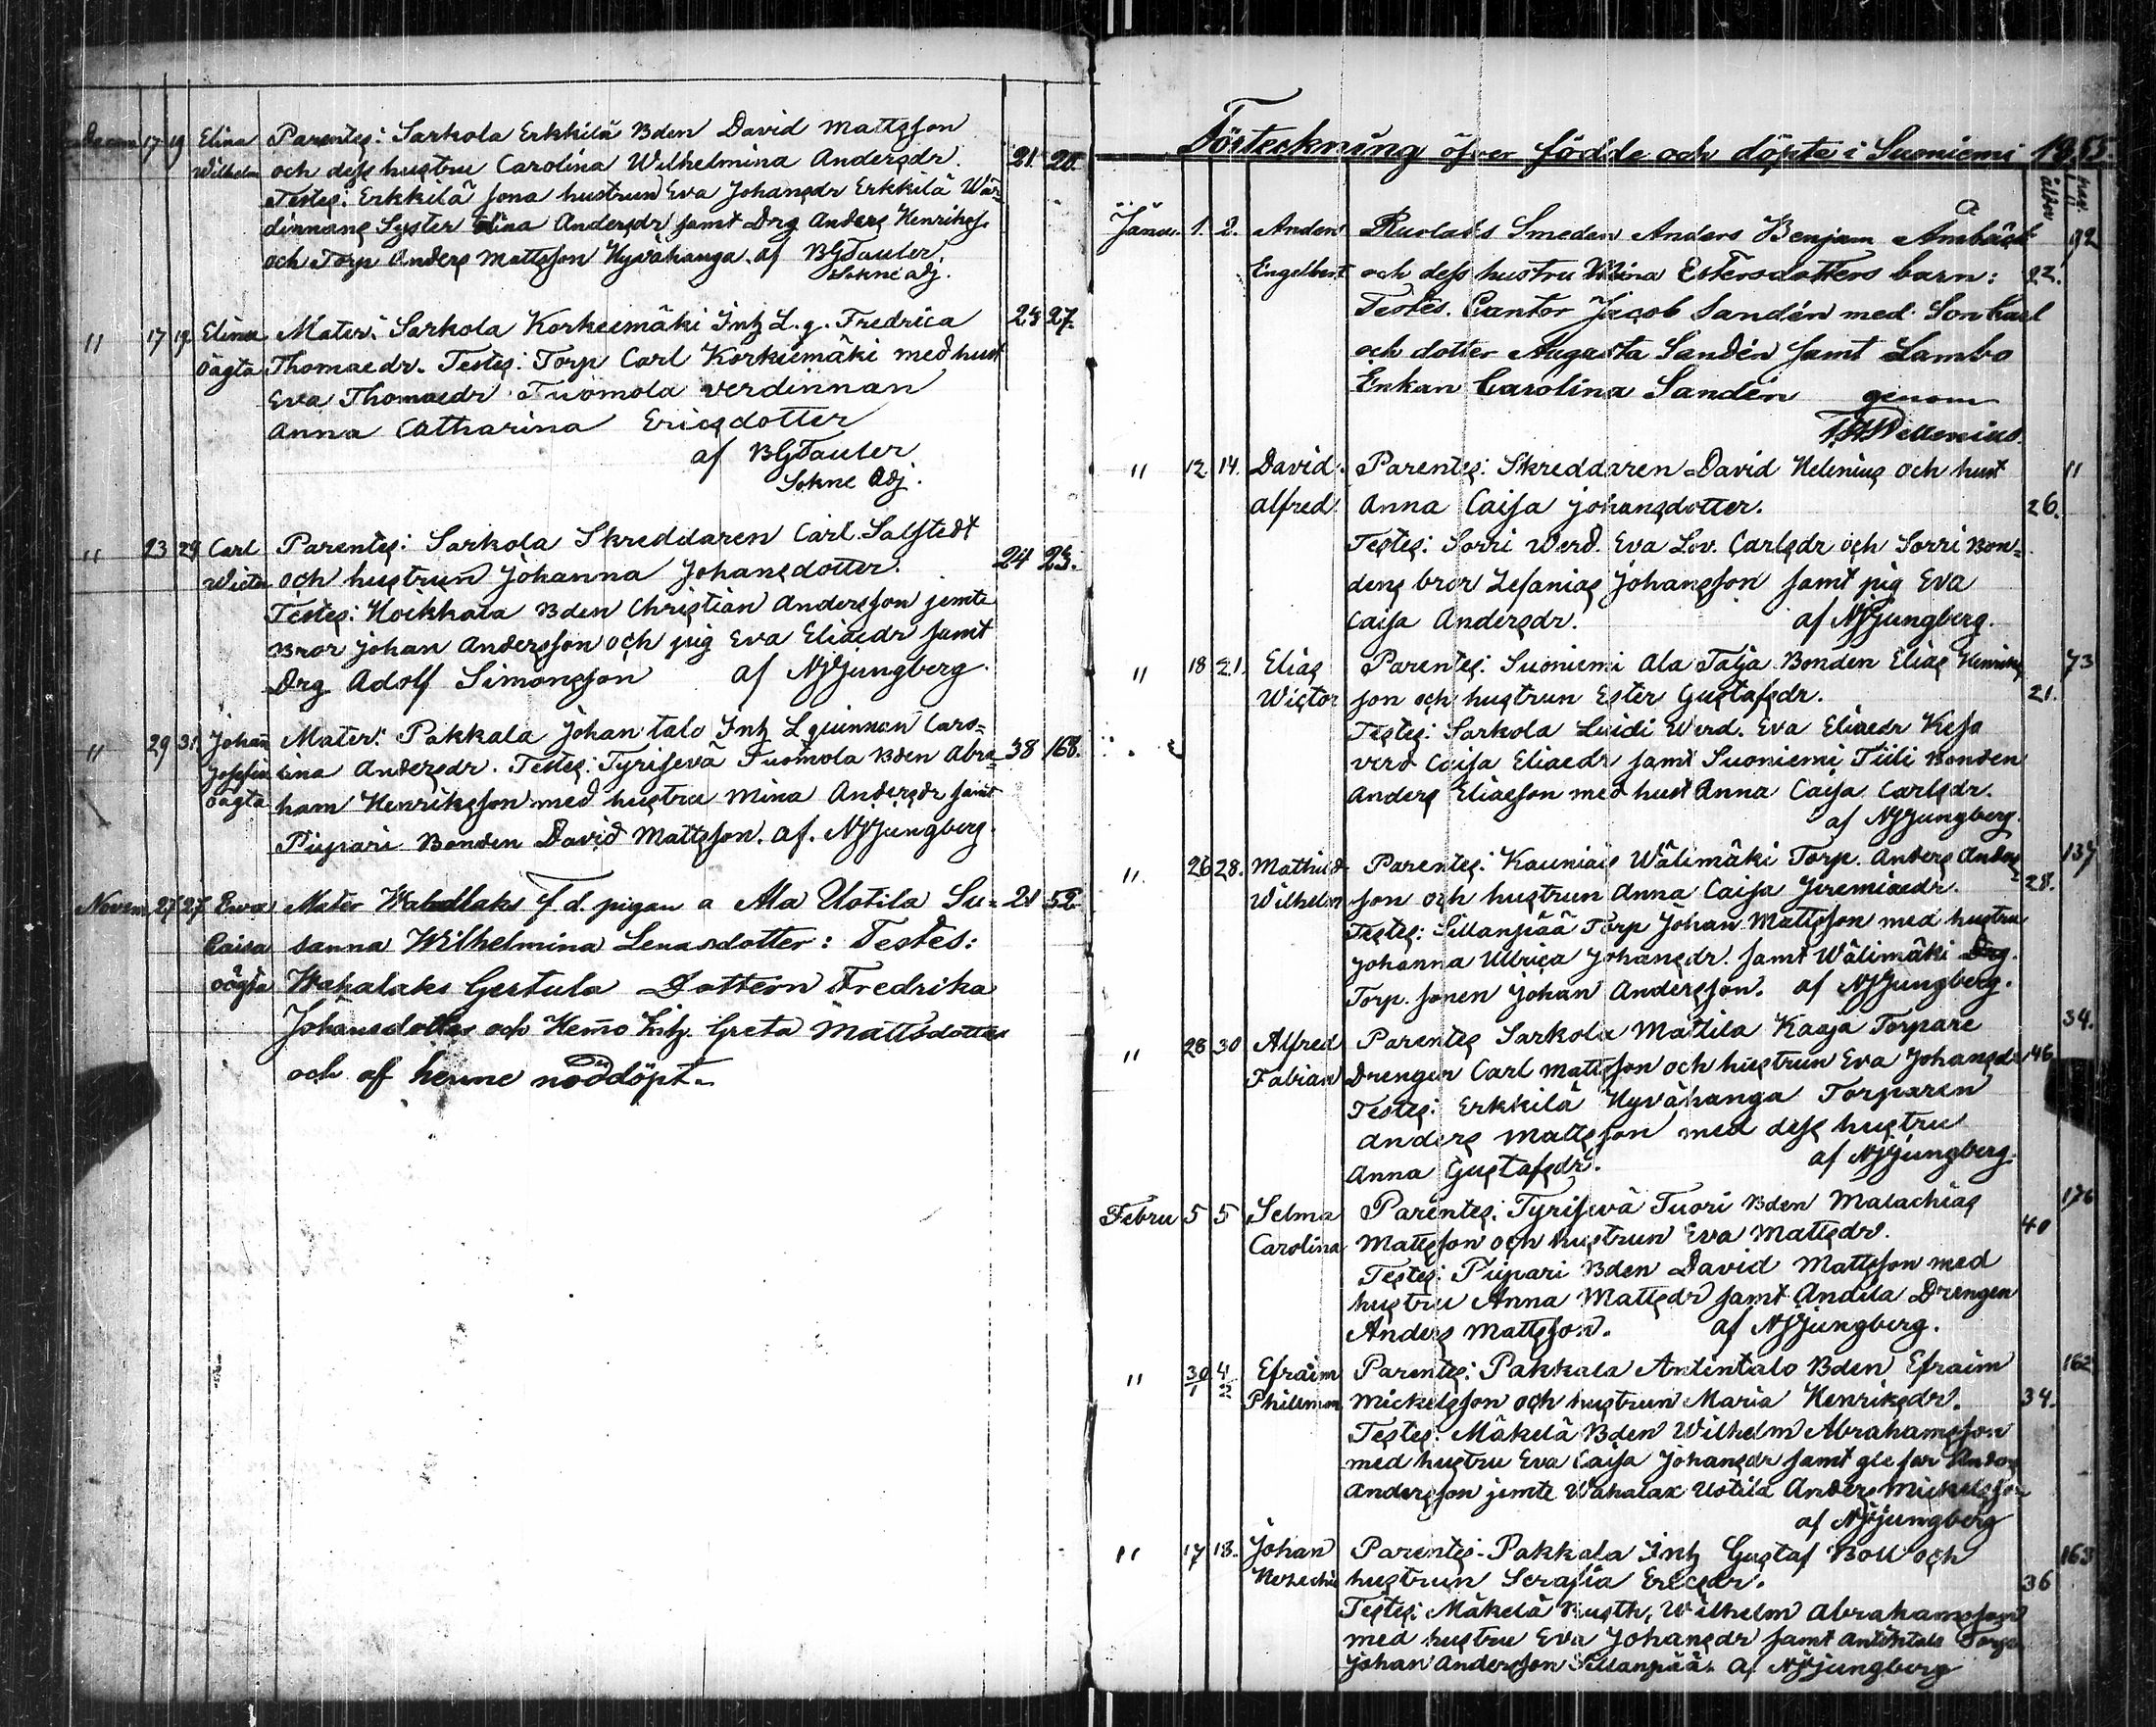 Decem 17 19 Elina Parentes: Sarkola Erkkilä Bden David Mattsson
Wilhelm och dess hustru Carolina Wilhelmina Andersdr. 21. 20.
Testes: Erkkilä sons hustrun Eva Johansdr Erkkilä Wär-
dinnans Syster Lina Andersdr samt Drg Anders Henrikss.
och Torp Anders Mattsson Hyvähanga. af BGTauler.
Sokne adj.
" 17 19 Elina Mater: Sarkola Korkeemäki Inh L.q. Fredrica 24 27.
oägta Thomaedr. Testes: Torp Carl Korkiemäki med hust
Eva Thomaedr Tuomola verdinnan
Anna Catharina Ericsdotter
af BGTauler
Sokne Adj.
" 23 29 Carl Parentes: Sarkola Skreddaren Carl Salstedt
Victor och hustrun Johanna Johansdotter. 24 23.
Testes: Hoikkala Bden Christian Andersson jemte
Bror Johan Andersson och pig Eva Eliaedr samt
Drg Adolf Simonsson af NJjungberg.
" 29 31. Johan Mater: Pakkala Johan talo Inh Lquinnan Caro-
Josefin lina Andersdr. Testes: Tyrisevä Tuomola Bden Abra- 38 168.
oägta ham Henriksson med hustru Mina Andersdr samt
Piipari Bonden David Mattsson. af. NJjungberg.
Novem 27 27 Ewa Mater Wahallaks f.d. pigan a Ala Uotila Su- 21 52
Caisa sanna Wilhelmina Lenasdotter: Testes:
oägta Wahalaks Gertula Dottern Fredrika
Johansdotter och Hemo Inh. Greta Mattsdotter
och af henne nöddöpt.
Förteckning öfver födde och döpte i Suoniemi 1855
ålder
Janu. 1. 2. Anders Ruolaks Smeden Anders Benjam 92
Engelbert och dess hustru Wilina Estersdotters barn: 22.
Testes. Cantor Jacob Sandén med Son Carl
och dotter Augusta Sandén samt Lambo
Enkan Carolina Sandén genom

" 12. 14. David Parentes: Skreddaren David Helenius och hust 11
Alfred Anna Caisa Johansdotter. 26.
Testes: Sorri Werd. Eva Lov. Carlsdr och Sorri Bon-
dens bror Zefanias Johansson samt pig Eva
Caisa Andersdr. af NJjungberg.
" 18 21. Elias Parentes: Suoniemi Ala Talja Bonden Elias Henriks 73
Wictor son och hustrun Ester Gustafsdr. 21.
Testes: Sarkola Luidi Werd. Eva Eliaedr Kesa
verd Caisa Eliaedr samt Suoniemi Tiili Bonden
Anders Eliaeson med hust Anna Caisa Carlsdr.
af NJjungberg.
" 26 28. Mathild Parentes: Kauniais Wälimäki Torp. Anders Anders 137
Wilhelm son och hustrun Anna Caisa Jeremiaedr. 28.
Testes: Sillanpää Torp Johan Mattsson med hustru
Johanna Ullrica Johansdr. samt Wälimäki Drg.
Torp. sonen Johan Andersson. af NJjungberg.
" 28 30 Alfred Parentes Sarkola Mattila Kaaja Torpare 34.
Fabian Drengen Carl Mattsson och hustrun Eva Johansdr 146
Testes: Erkkilä Hyvähanga Torparen
Anders Mattsson med dess hustru
Anna Gustafsdr. af NJjungberg.
Febru 5 5 Selma Parentes: Tyrisevä Tuori Bden Malachias 176
Carolina Mattsson och hustrun Eva Mattsdr. 40
Testes: Piipari Bden David Mattsson med
hustru Anna Mattsdr samt Andila Drengen
Anders Mattsson. af NJjungberg.
" 30/1 4/2 Efraim Parentes: Pakkala Antintalo Bden Efraim 162
Philemon Mickelsson och hustrun Maria Henriksdr. 34.
Testes: Mäkelä Bden Wilhelm Abrahamsson
med hustru Eva Caisa Johansdr samt Anders
Andersson jemte Wahalax Uotila Anders Mickelsson
af NJjungberg
" 17 18. Johan Parentes: Pakkala Inh Gustaf Boll och 163
hustrun Serafia Ericsdr. 36
Testes: Mäkelä Rusth. Wilhelm Abrahamsson
med hustru Eva Johansdr samt Antintalo Torp
Johan Andersson Sillanpää. af NJjungberg